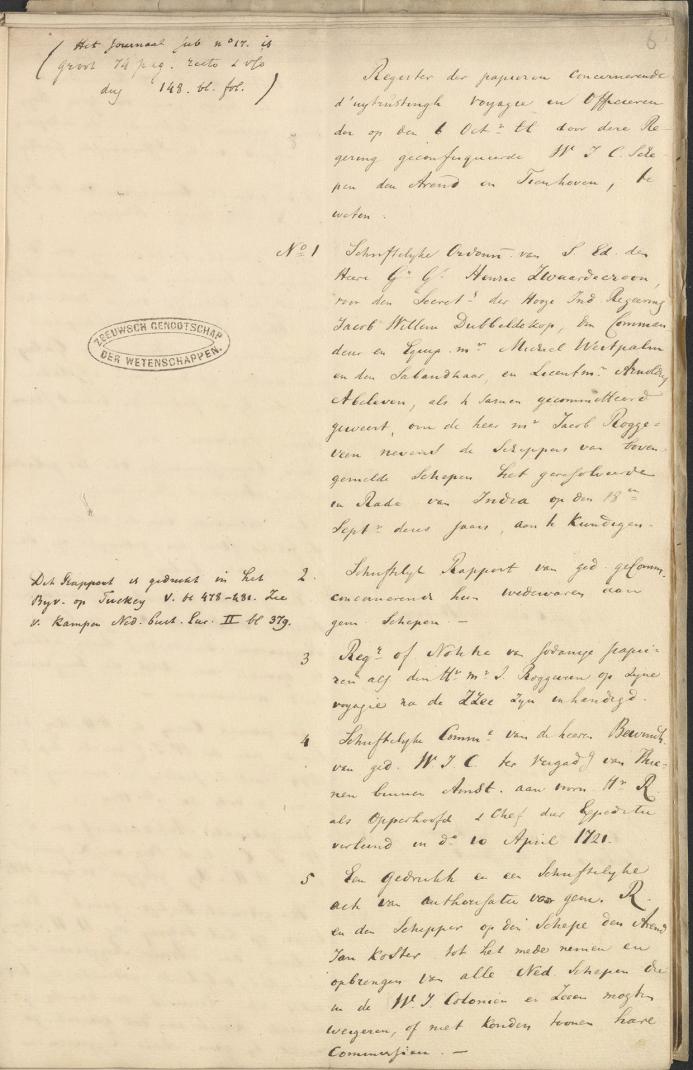 6
(Het Journaal sub no 17. is
groot 74 pag. recto & v/so
dus 148. bl. fol.)
Register der papieren Concernerende
d'uytrustingh voyagie en Officieren
der op den 6 Octr. ll. door dese Re-
gering geconfisqueerde W I C. Sche-
pen den Arend en Tienhoven, te
weten.
No 1 Schriftelyke Ordonn. van S. Ed. den
Heere Gr Gl Henric Zwaardecroon,
voor den Secrets. der Hooge Ind. Regering
Jacob Willem Dubbeldekop, den Comman
deur en Equip. mr Michiel Westpalm
en den Sabandhaar, en Licentmr. Arnoldus
Abeleven, als te samen gecommitteerd
geweest, om de heer mr Jacob Rogge-
veen nevenst de Schippers van boven-
gemelde Schepen het geresolveerde
in Rade van India op den 18en
Septr deses jaars, aan te kundigen.
ZEEUWSCH GENOOTSCHAP
DER WETENSCHAPPEN.
Dit Rapport is gedrukt in het
Byv. op Tuckey V. bl 478-481. Zie
v. Kampen Ned. buit. Eur. II bl 379.
2. Schriftelyk Rapport van ged. geComm.
concernerende hun wedervaren aan
gem. Schepen. —
3 Regr of Notitie van sodanige papie-
ren als den Hr mr J. Roggeveen op zyne
voyagie na de ZZee zyn inhandigd.
4 Schriftelyke Comme van de heeren Bewindh.
van ged. W I C. ter vergadg van Thie-
nen binnen Amst. aan voorn. Hr R.
als Opperhoofd & Chef dier Expeditie
verleend in do 10 April 1721.
5 Een gedrukte en een Schriftelyke
acte van authorisatie voor gem. R.
en den Schipper op den Schepe den Arend
Jan Koster tot het mede nemen en
opbrengen van alle Ned. Schepen die
in de W. I. Colonien en Zeeen mogten
weigeren, of niet konden toonen hare
Commissien. —